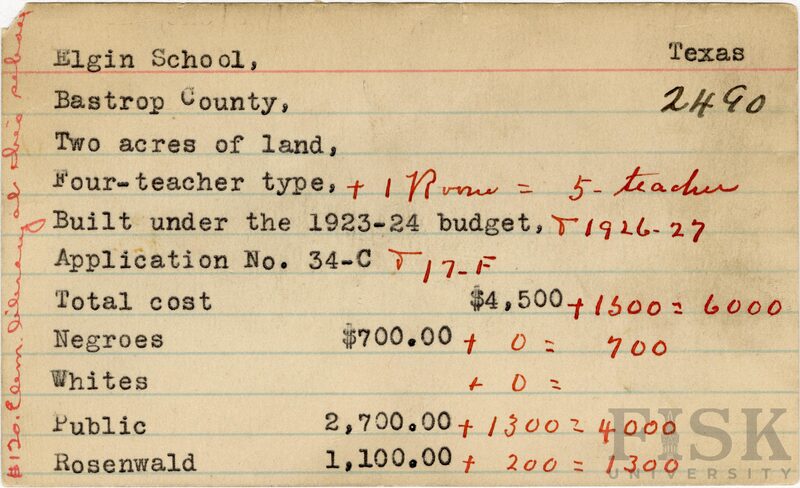 Elgin School, Texas
Bastrop County, 2490
Two acres of land,
Four-teacher type, + 1 Room = 5-teacher
Built under the 1923-24 budget, & 1926-27
Application No. 34-C & 17-F
Total cost $4,500 + 1500 = 6000
Negroes $700.00 + 0 = 700
Whites + 0 =
Public 2,700.00 + 1300 = 4000
Rosenwald 1,100.00 + 200 = 1300
$120. Elem. library at this school
FISK
UNIVERSITY